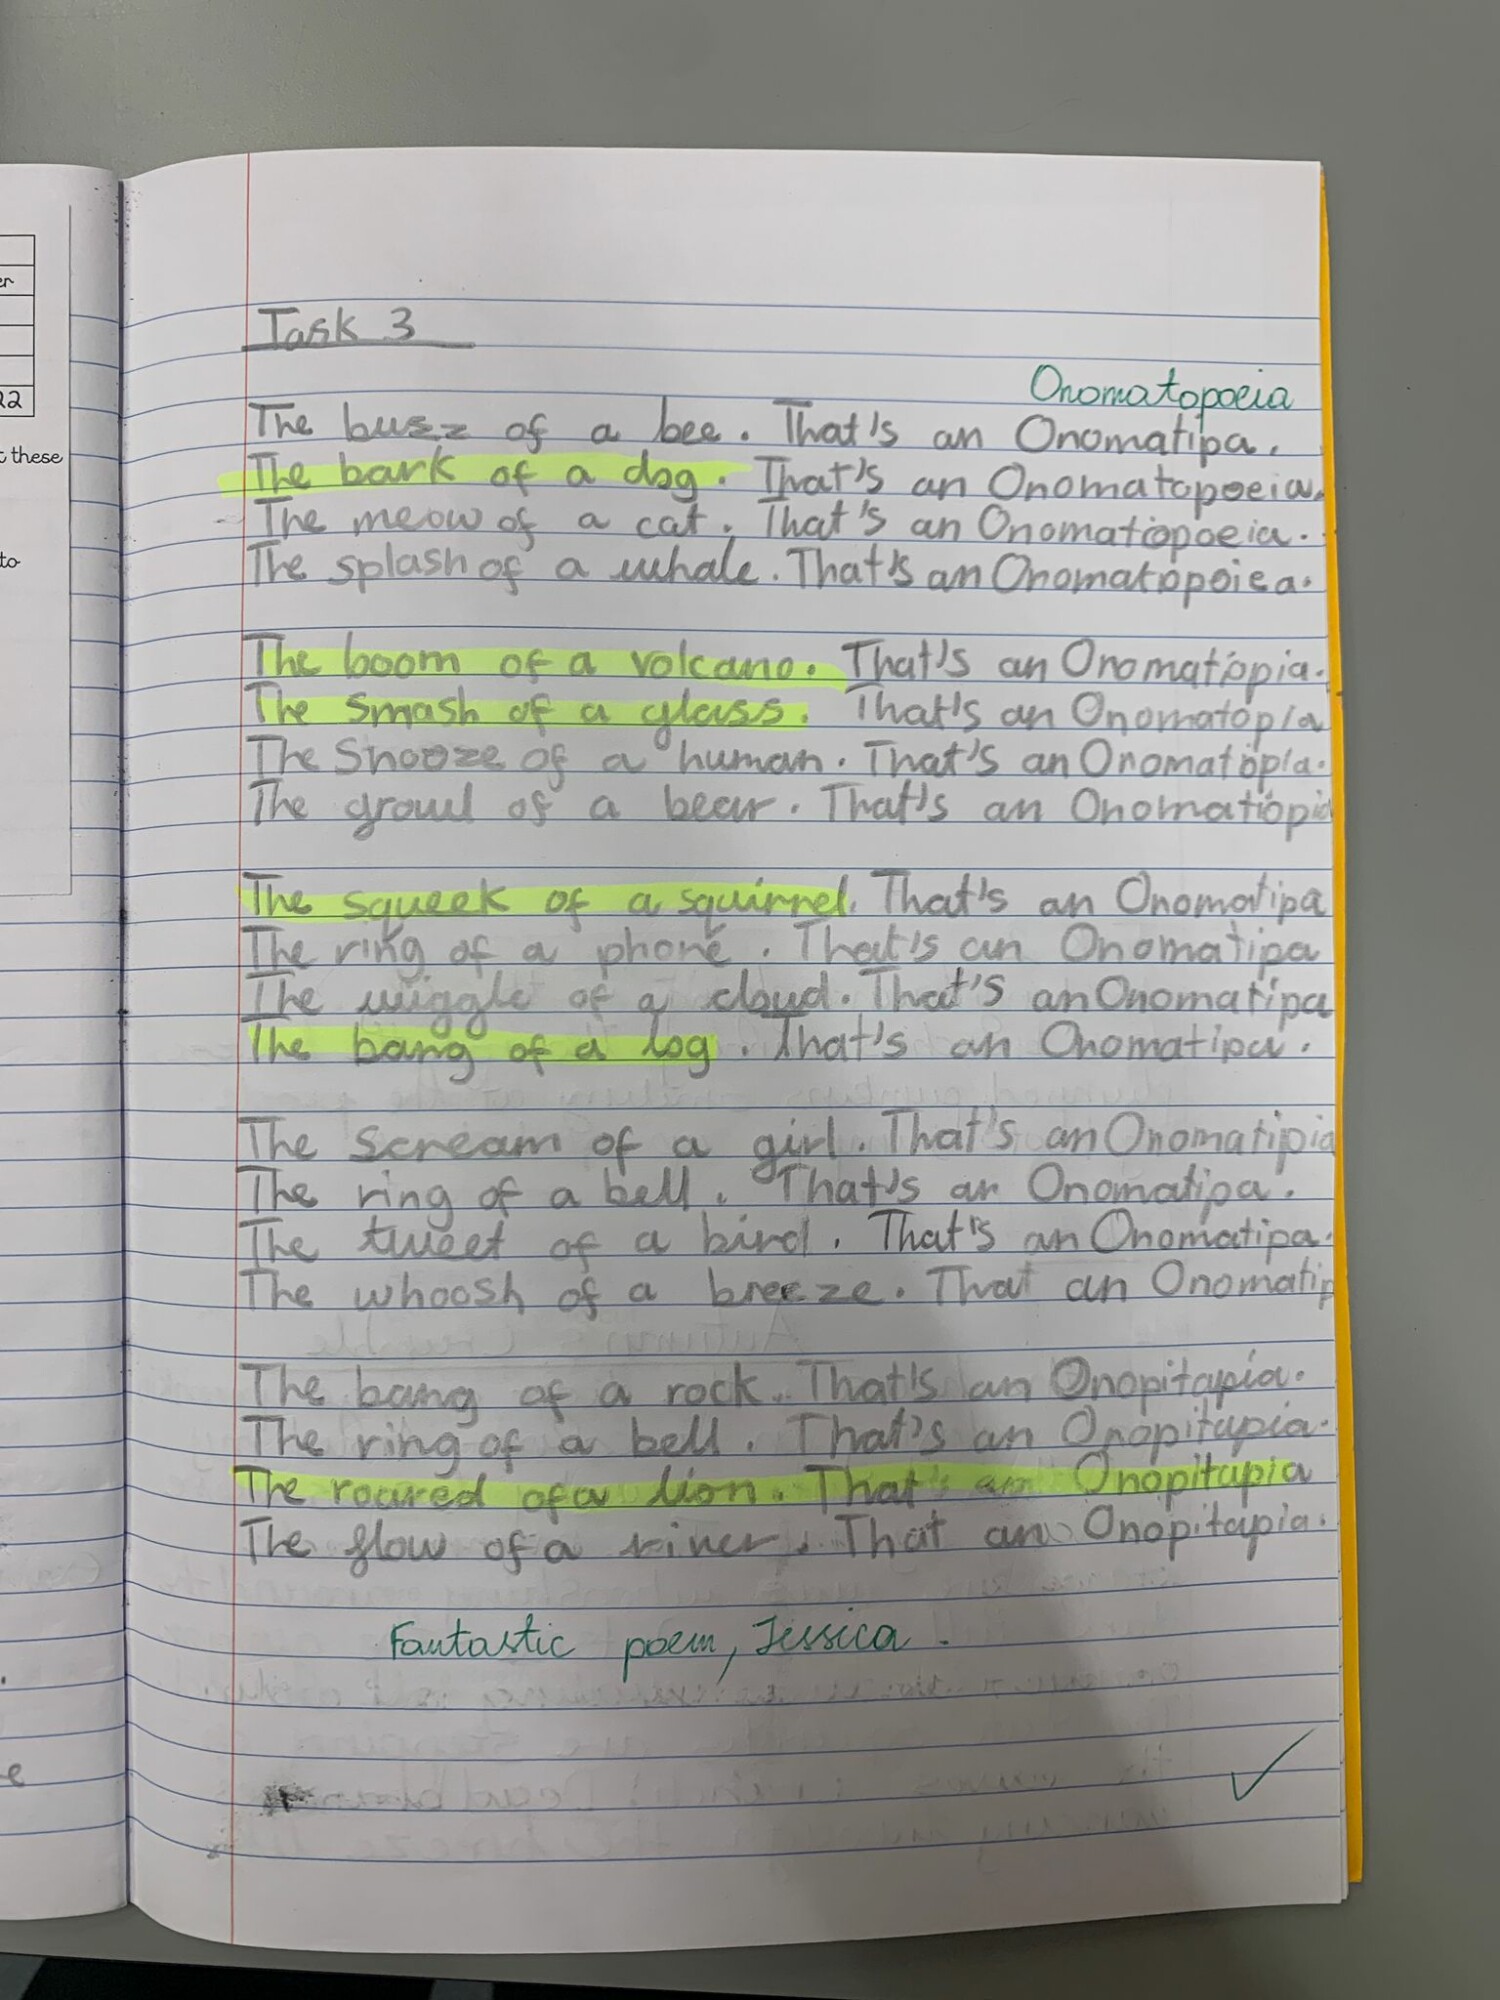 er
22
t these
to
e
Task 3
Onomatopoeia
The buzz of a bee. That's an Onomatipa.
The bark of a dog. That's an Onomatopoeia.
The meow of a cat. That's an Onomatiopoeia.
The splash of a whale. That's an Onomatopoiea.
The boom of a volcano. That's an Onomatiopia.
The smash of a glass. That's an Onomatopia
The Snooze of a human. That's an Onomatopia.
The growl of a bear. That's an Onomatiopia
The squeek of a squirrel. That's an Onomatipa
The ring of a phone. That's an Onomatipa
The wiggle of a cloud. That's an Onomatipa
The bang of a log. That's an Onomatipa.
The scream of a girl. That's an Onomatipia
The ring of a bell. That's an Onomatipa.
The tweet of a bird. That's an Onomatipa.
The whoosh of a breeze. That an Onomatip
The bang of a rock. That's an Onopitapia.
The ring of a bell. That's an Onopitapia.
The roared of a lion. That's an Onopitapia
The flow of a river. That an Onopitapia.
Fantastic poem, Jessica.